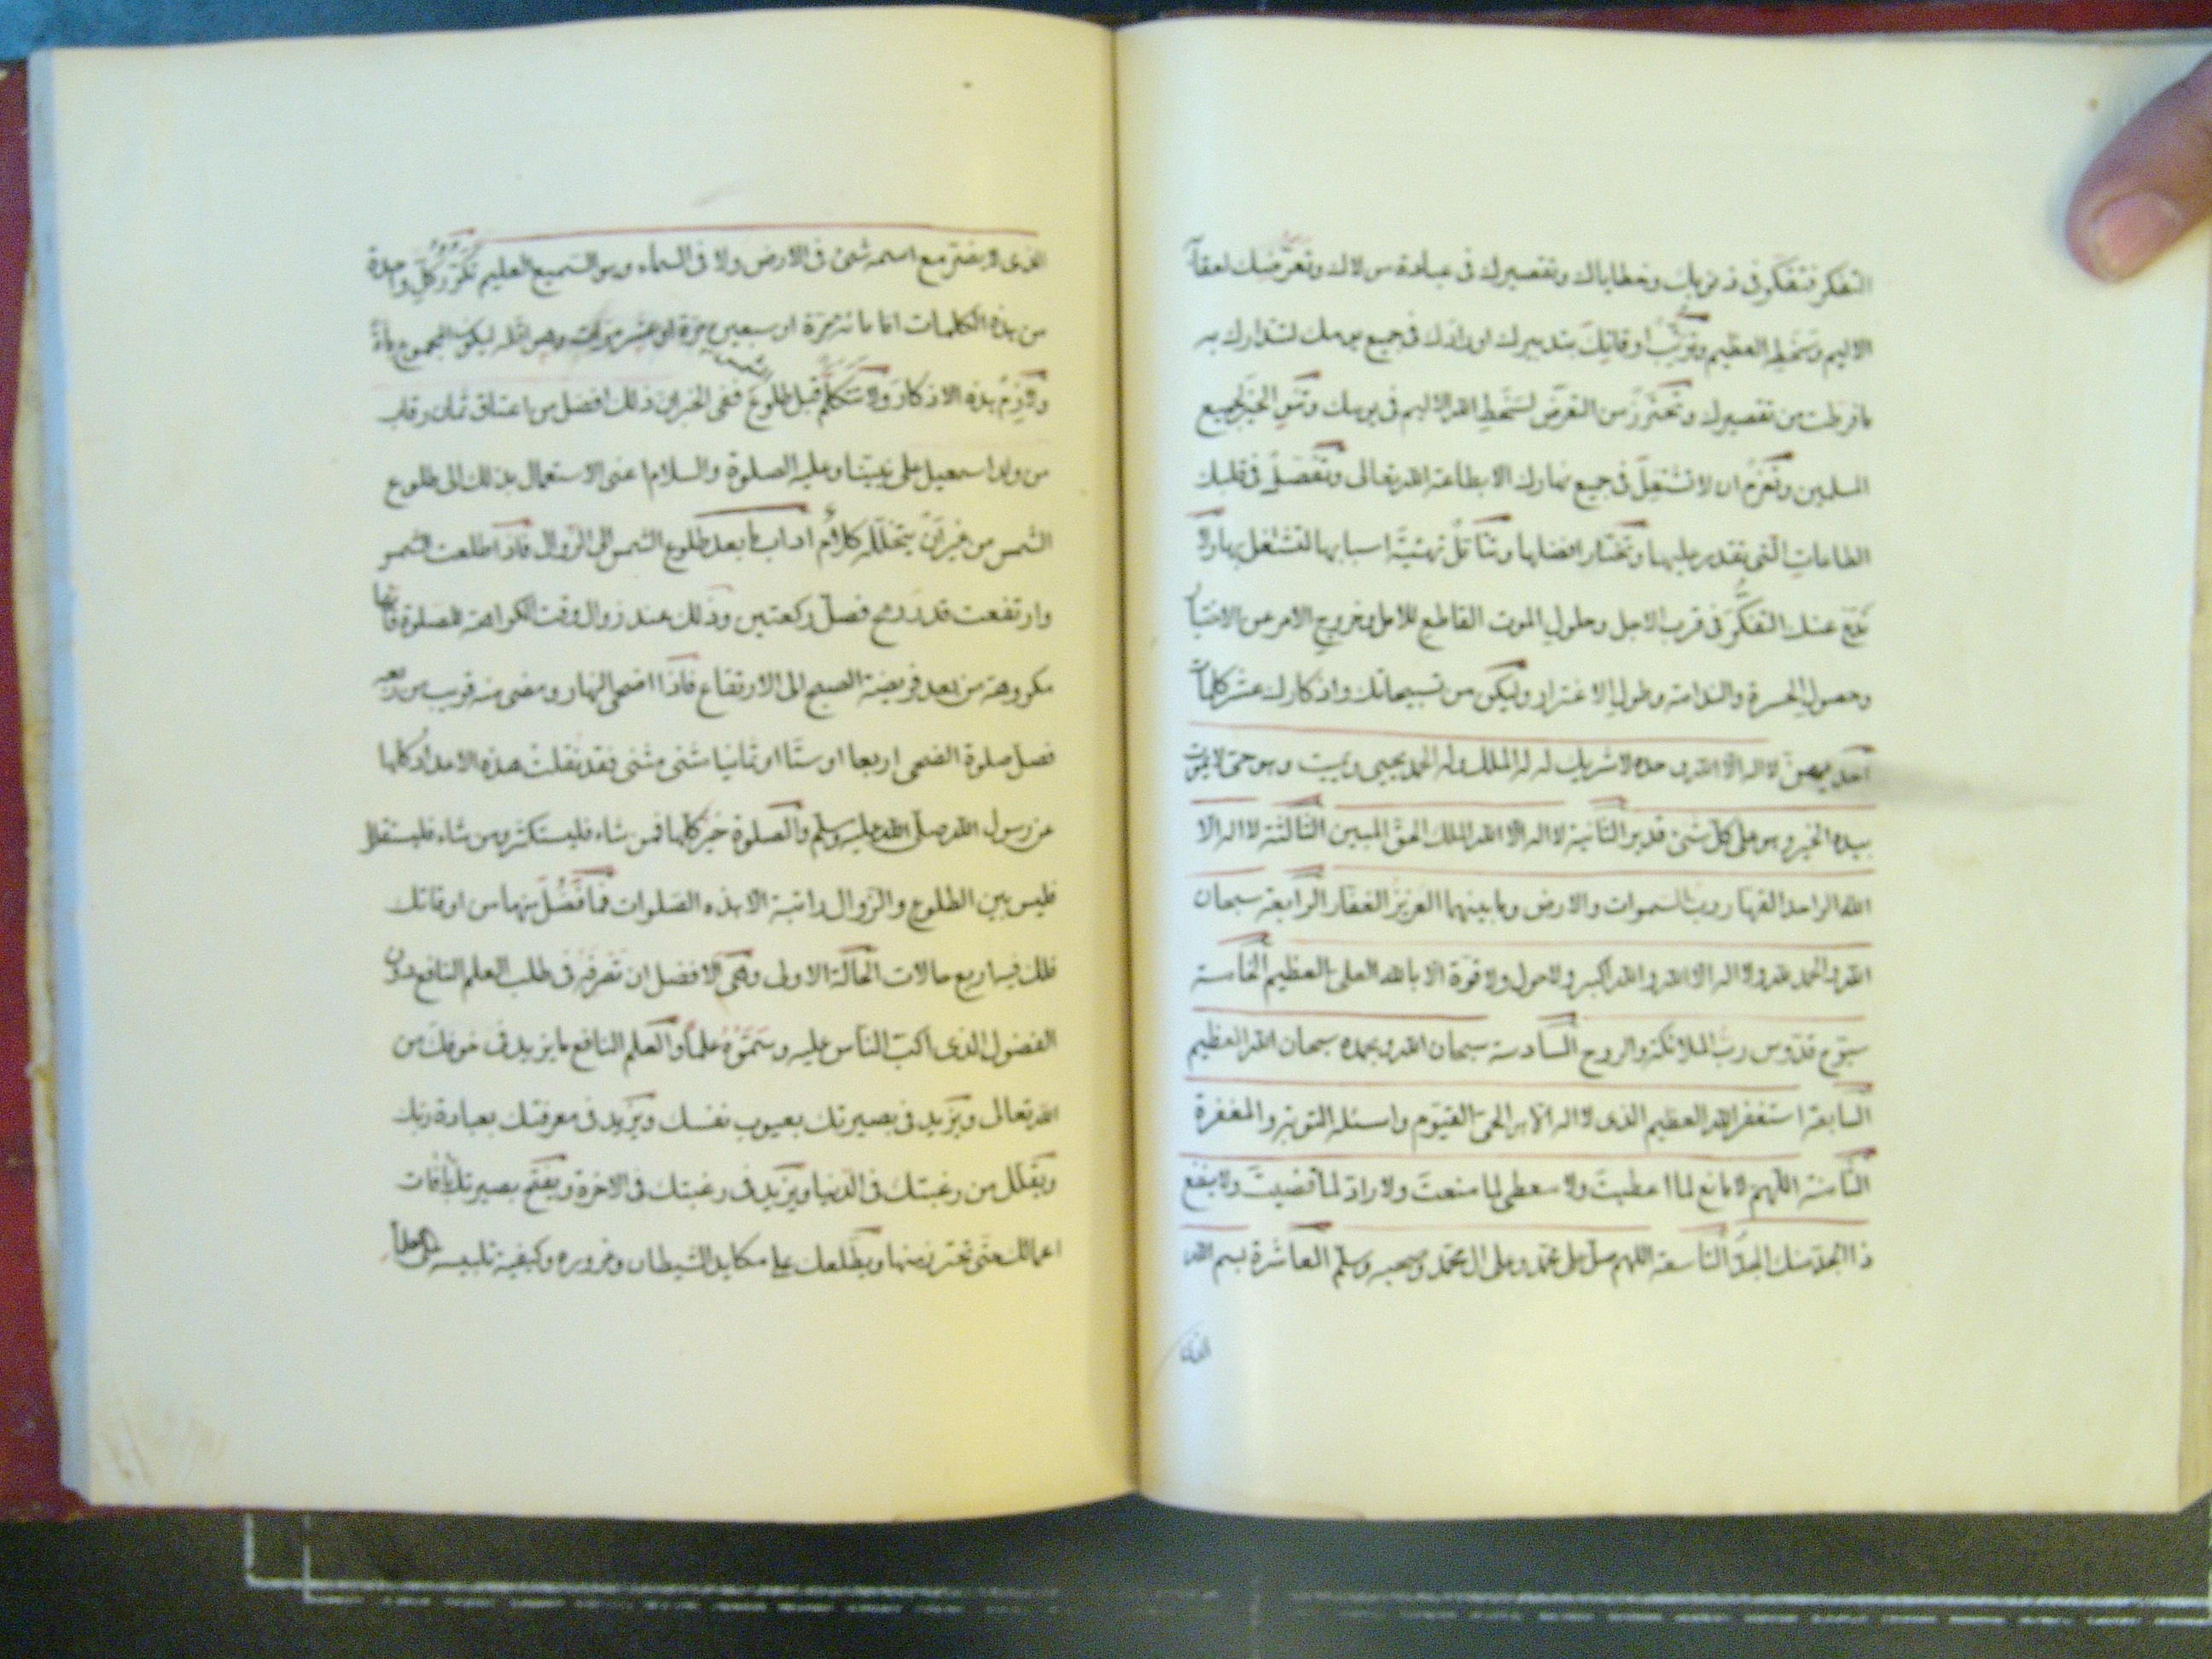 التفكر فتفكر فى ذنوبك وخطاياك وتقصيرك فى عبادة مولاك وتعرضك لعقابه
الاليم وسخطه العظيم وترتب اوقاتك بتدبيرك اورادك فى جميع يومك لتتدارك به
ما فرطت من تقصيرك وتحترز من التعرض لسخط الله الاليم فى يومك وتنوى الخير لجميع
المسلمين وتعزم ان لا تشتغل فى جميع نهارك الا بطاعة الله تعالى وتفصل فى قلبك
الطاعات التى تقدر عليها وتختار افضلها وتتأمل تهيئة اسبابها لتشتغل بها ولا
تدع عنك التفكر فى قرب الاجل وحلول الموت القاطع للامل وخروج الامر عن الاختيار
وحصول الحسرة والندامة وطول الاغترار وليكن من تسبيحاتك واذكارك عشر كلمات
احديهن لا اله الا الله وحده لا شريك له له الملك وله الحمد يحيى ويميت وهو حى لا يموت
بيده الخير وهو على كل شئ قدير الثانية لا اله الا الله الملك الحق المبين الثالثة لا اله الا
الله الواحد القهار رب السموات والارض وما بينهما العزيز الغفار الرابعة سبحان
الله والحمد لله ولا اله الا الله والله اكبر ولا حول ولا قوة الا بالله العلى العظيم الخامسة
سبوح قدوس رب الملائكة والروح السادسة سبحان الله وبحمده سبحان الله العظيم
السابعة استغفر الله العظيم الذى لا اله الا هو الحى القيوم واسئله التوبة والمغفرة
الثامنة اللهم لا مانع لما اعطيت ولا معطى لما منعت ولا راد لما قضيت ولا ينفع
ذا الجد منك الجد التاسعة اللهم صل على محمد وعلى ال محمد وصحبه وسلم العاشرة بسم الله
الذى
الذى لا يضر مع اسمه شئ فى الارض ولا فى السماء وهو السميع العليم تكرر كل واحدة
من هذه الكلمات اما مائة مرة او سبعين مرة او عشر مرات وهو اقله ليكون المجموع مائة
ولازم هذه الاذكار ولا تتكلم قبل طلوع الشمس ففى الخبر ان ذلك افضل من اعتاق ثمان رقاب
من ولد اسمعيل على نبينا وعليه الصلوة والسلام اعنى الاستعمال بذلك الى طلوع
الشمس من غير ان يتخلله كلام اداب ما بعد طلوع الشمس الى الزوال فاذا طلعت الشمس
وارتفعت قدر رمح فصل ركعتين وذلك عند زوال وقت الكراهة للصلوة فانها
مكروهة من بعد فريضة الصبح الى الارتفاع فاذا اضحى النهار ومضى منه قريب من ربعه
فصل صلوة الضحى اربعا او ستا او ثمانيا مثنى مثنى فقد نقلت هذه الاعداد كلها
عن رسول الله صلى الله عليه وسلم والصلوة خير كلها فمن شاء فليستكثر ومن شاء فليستقلل
فليس بين الطلوع والزوال راتبة الا هذه الصلوات فما فضل منها من اوقاتك
فلك فيه اربع حالات الحالة الاولى وهى الافضل ان تصرفه فى طلب العلم النافع دون
الفضول الذى اكب الناس عليه وسموه علما والعلم النافع ما يزيد فى خوفك من
الله تعالى ويزيد فى بصيرتك بعيوب نفسك ويزيد فى معرفتك بعبادة ربك
ويقلل من رغبتك فى الدنيا ويزيد فى رغبتك فى الاخرة ويفتح بصيرتك بافات
اعمالك حتى تحترز منها ويطلعك على مكايد الشيطان وغروره وكيفية تلبيسه على علماء